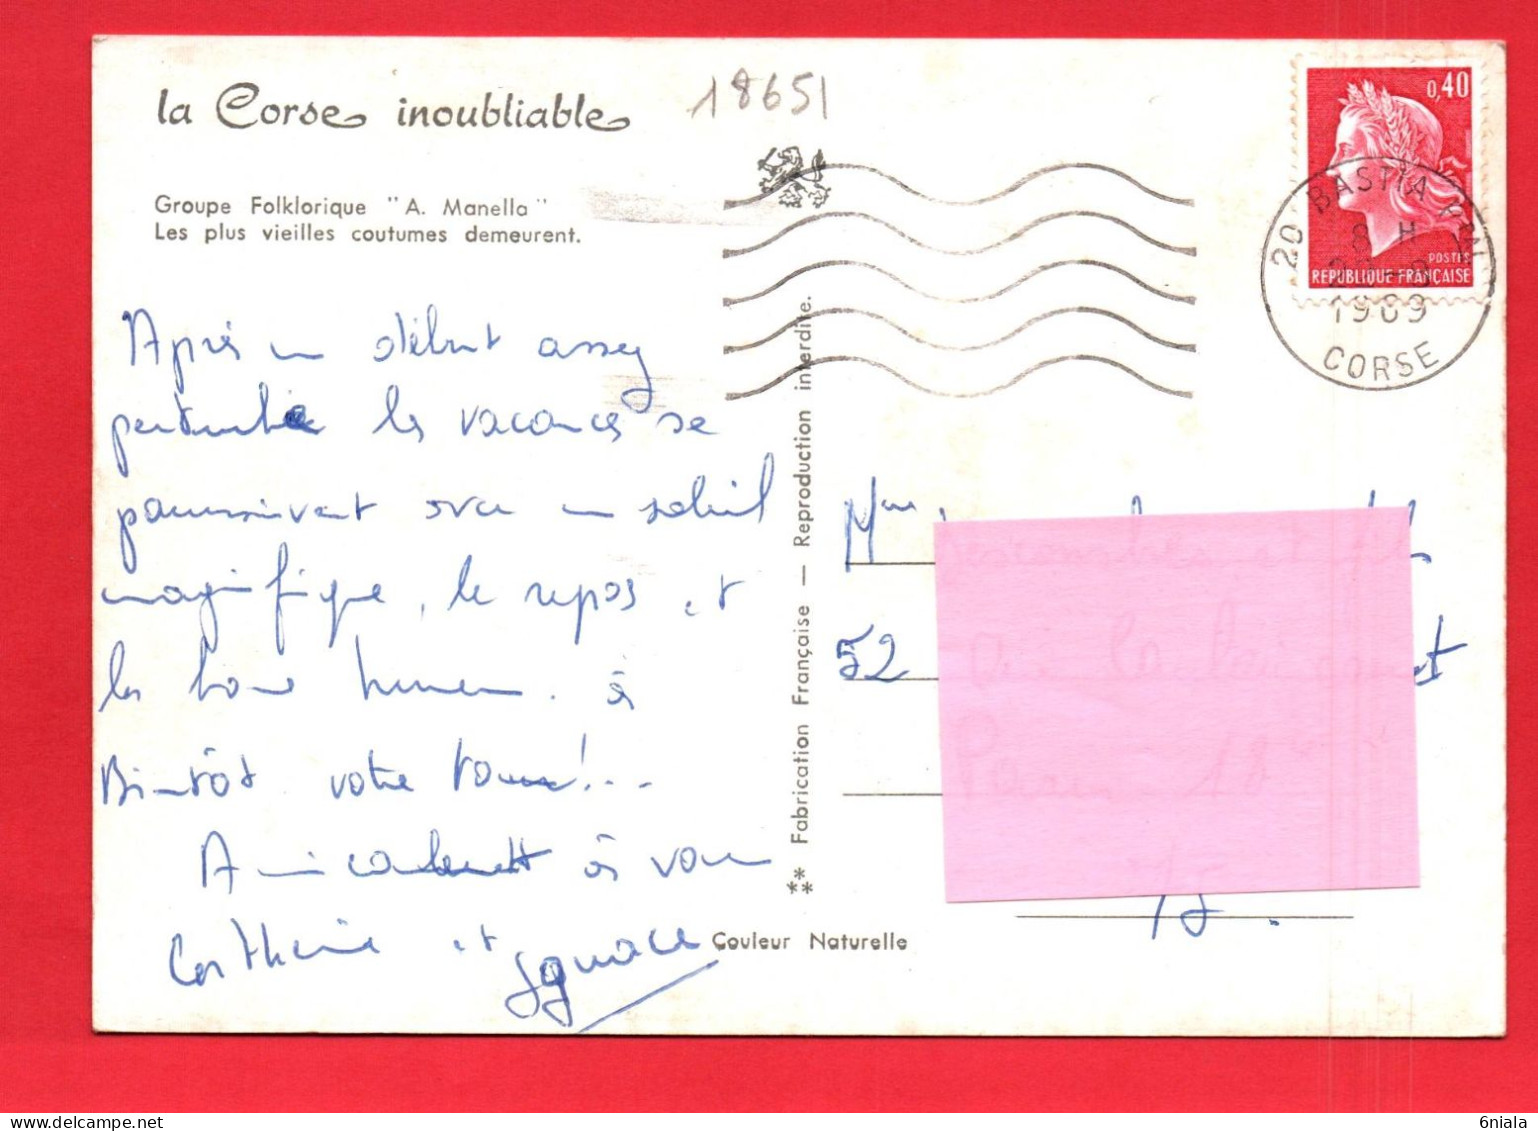 la Corse inoubliable
18651
Groupe Folklorique "A. Manella"
Les plus vieilles coutumes demeurent.
0,40
POSTES
REPUBLIQUE FRANÇAISE
20 BASTIA
8 H
1969
CORSE
Après un début assez
perturbé les vacances se
poursuivent avec un soleil
magnifique, le repos et
la bonne humeur. à
Bientôt votre tour!...
Amicalement à vous
Catherine et Ignace
Fabrication Française — Reproduction interdite.
Couleur Naturelle
Mme
52
Paris 18
75.
6niala